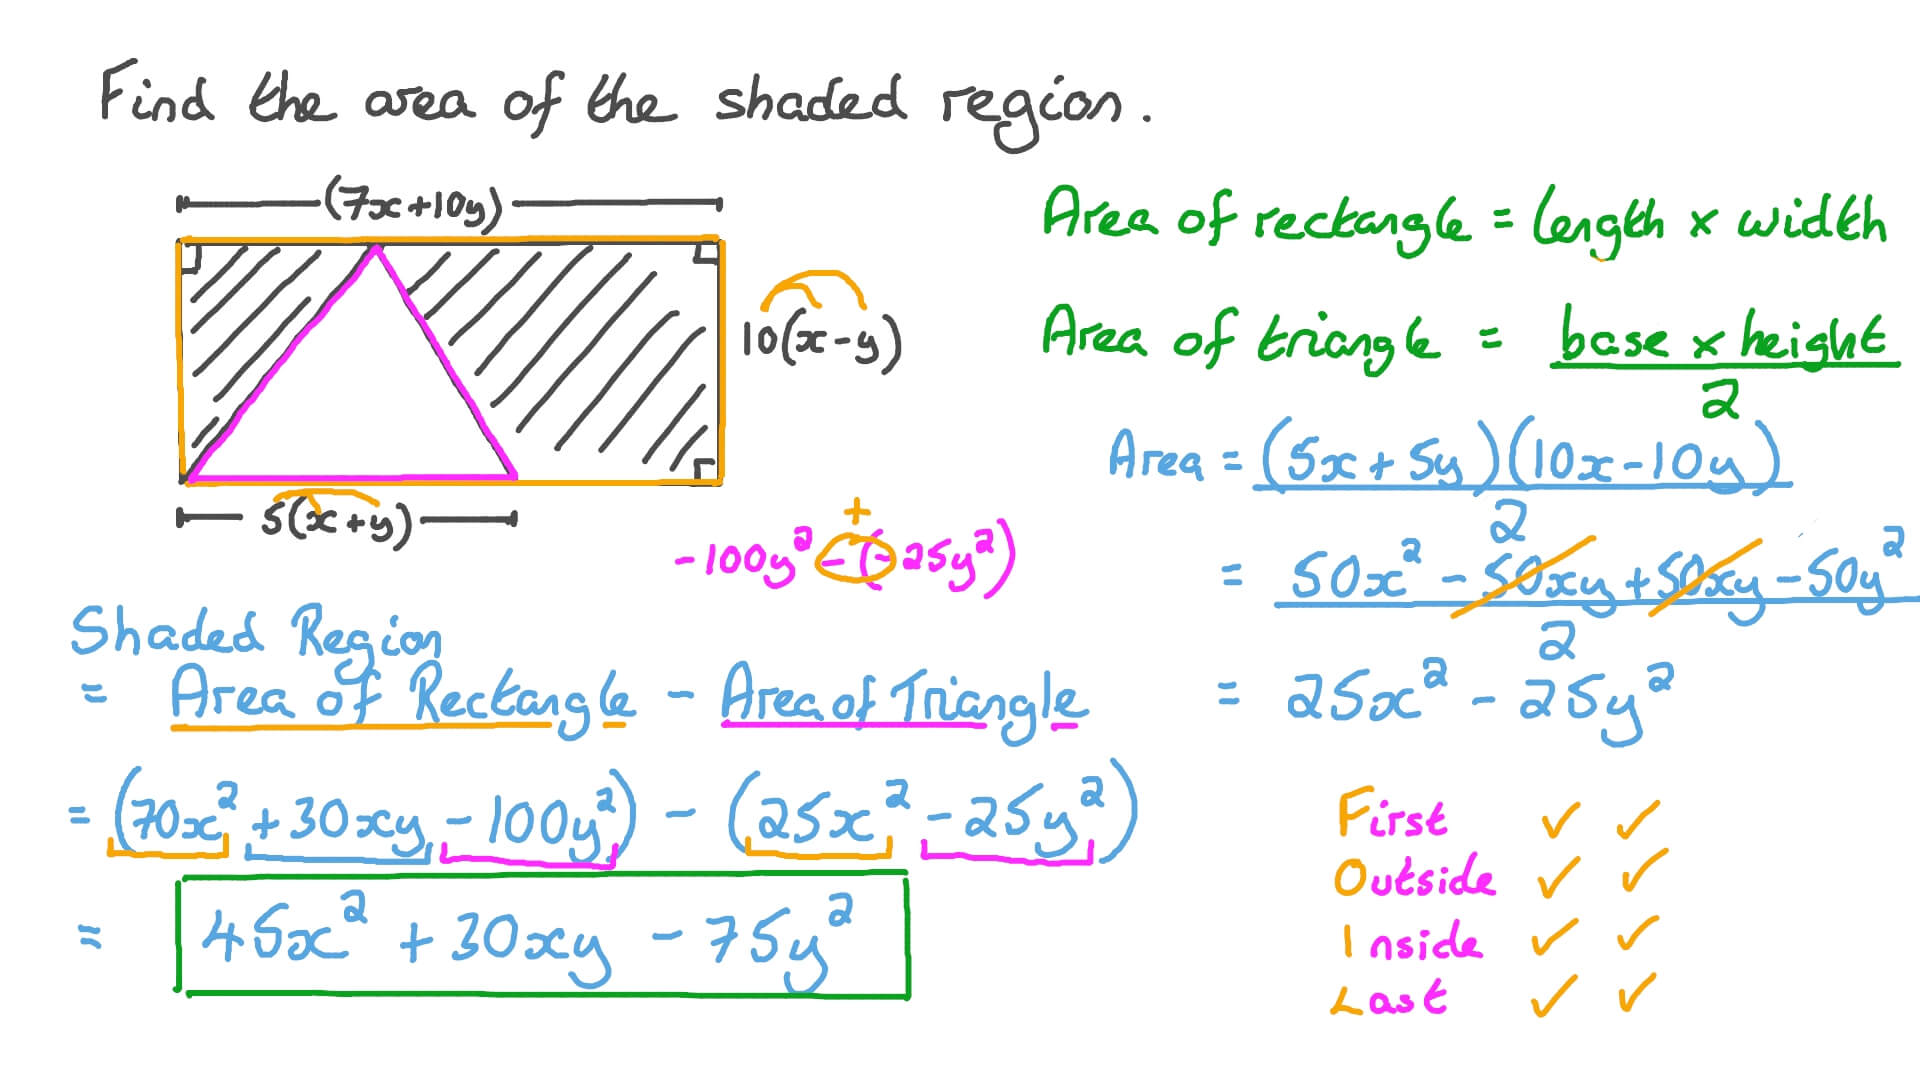 Find the area of the shaded region.
(7x+10y)
10(x-y)
5(x+y)
Area of rectangle = length x width
Area of triangle = base x height
2
Area = (5x+5y)(10x-10y)
2
= 50x² - 50xy + 50xy - 50y²
2
= 25x² - 25y²
+
-100y² - (-25y²)
Shaded Region
= Area of Rectangle - Area of Triangle
= (70x² + 30xy - 100y²) - (25x² - 25y²)
= 45x² + 30xy - 75y²
First ✓ ✓
Outside ✓ ✓
Inside ✓ ✓
Last ✓ ✓